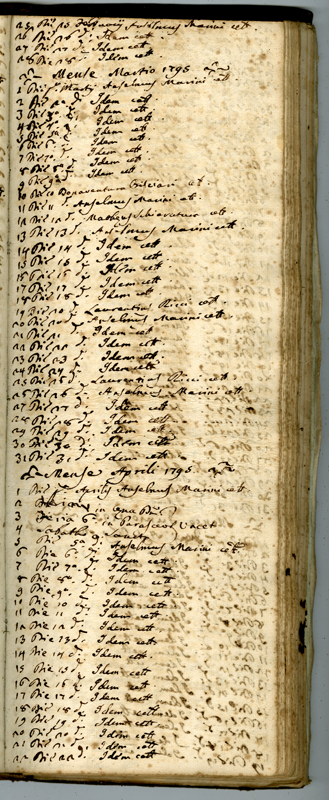 25 Die 25 Februarij Anselmus Marini cett.
26 Die 26 d. Idem cett.
27 Die 27 d. Idem cett.
28 Die 28 d. Idem cett
Mense Martio 1795
1 Die Martij Anselmus Marini cett.
2 Die 2 d. Idem cett.
3 Die d. Idem cett.
4 Die d. Idem cett.
5 Die d. Idem cett.
6 Die d. Idem cett
7 Die 7 d. Idem cett
8 Die 8 d. Idem cett.
9 Die 9 d. Idem cett.
10 Die 10 Bonaventura cet.
11 Die 11 d. Anselmus Marini cet.
12 Die 12 d. Matheus cet.
13 Die 13 d. Anselmus Marini cett.
14 Die 14 d. Idem cett.
15 Die 15 d. Idem cett.
16 Die 16 d. Idem cett.
17 Die 17 d. Idem cett
18 Die 18 d. Idem cett.
19 Die 19 d. Laurentius Ricci cett.
20 Die 20 d. Anselmus Marini cett.
21 Die 21 d. Idem cett
22 Die 22 d. Idem cett.
23 Die 23 d. Idem cett.
24 Die 24 d. Idem cett
25 Die 25 d. Laurentius Ricci cett
26 Die 26 d. Anselmus Marini cett
27 Die 27 d. Idem cett
28 Die 28 d. Idem cett
29 Die 29 d. Idem cett
30 Die 30 d. Idem cett
31 Die 31 d. Idem cett.
Mense Aprili 1795
1 Die Aprilis Anselmus Marini cett.
2 Feria in Cena
3 Feria 6 in Parasceve Vacet
4 Sabatho Sancto
5 Die 5 d. Anselmus Marini cett.
6 Die 6 d. Idem cett.
7 Die 7 d. Idem cett.
8 Die 8 d. Idem cett.
9 Die 9 d. Idem cett
10 Die 10 d. Idem cett
11 Die 11 d. Idem cett
12 Die 12 d. Idem cett
13 Die 13 d. Idem cett
14 Die 14 d. Idem cett.
15 Die 15 d. Idem cett
16 Die 16 d. Idem cett
17 Die 17 d. Idem cett
18 Die 18 d. Idem cett
19 Die 19 d. Idem cett
20 Die 20 d. Idem cett
21 Die 21 d. Idem cett
22 Die 22 d. Idem cett